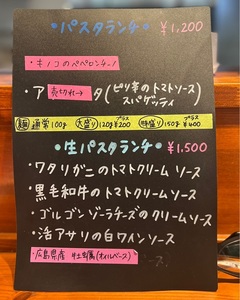 ・パスタランチ・ ¥1,200
・キノコのペペロンチーノ
・ア 売切れ→ タ (ピリ辛のトマトソース)
スパゲッティ
麺 通常 100g 大盛り 120g プラス¥200 特盛り 150g プラス¥400
・生パスタランチ・ ¥1,500
・ワタリガニのトマトクリームソース
・黒毛和牛のトマトクリームソース
・ゴルゴンゾーラチーズのクリームソース
・活アサリの白ワインソース
・広島県産 牡蠣(オイルベース) ース・